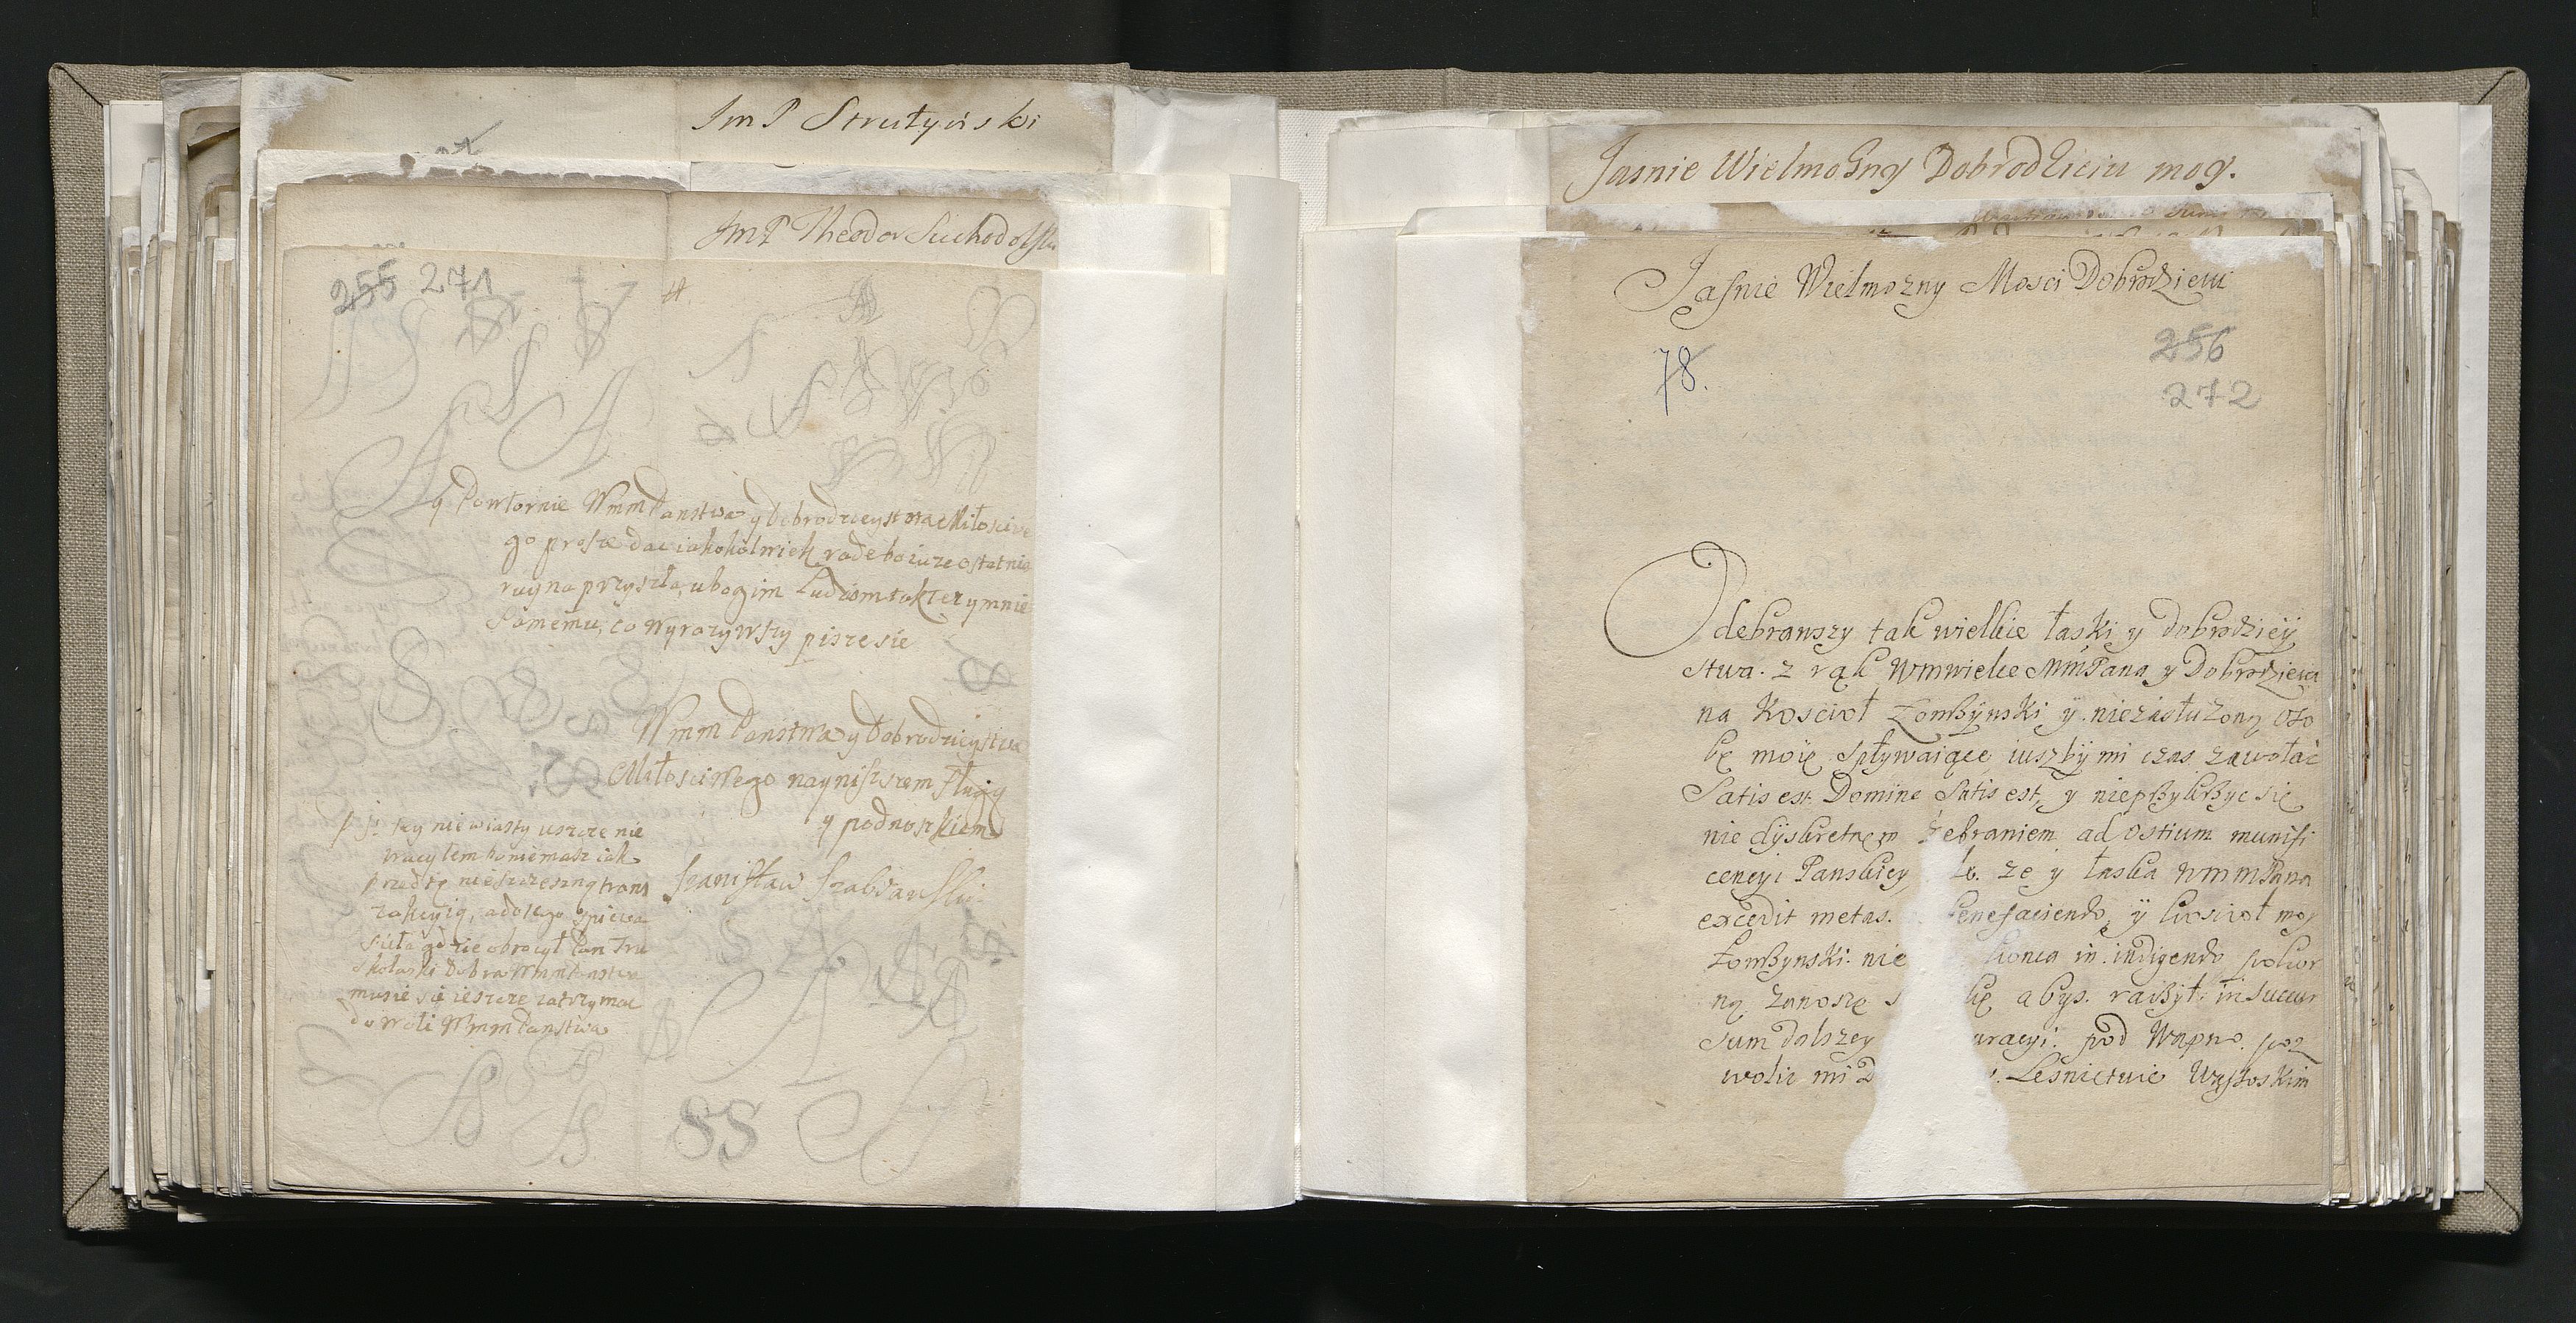 Jm P Strutyński
Jm P Theodor Suchodolski
255 271
y Powtornie Wmm Panstwa y Dobrodzieystwa Miłosciwe
go prosze dac iakokolwiek rade bo iuze ostatnia
ruyna przyszła, ubogim Ludziom tak tez y mnie
samemu, co wyrazywszy pisze sie
Wmm Panstwa y Dobrodzieystwa
Miłosciwego nayniszszem sługą
y podnoszkiem
tey niewiasty uszcze nie
bo niemasz iak
przed tę nieszczesną trans
zakcyią, a do tego spiewa
gdzie obrocył Pan Tru
skolaski dobra Wmm Panstwa
musie się ieszcze zatrzymac
do woli Wmm Panstwa
Stanisław
SS
Jasnie Wielmożny Dobrodzieiu moy.
Jasnie Wielmozny Mosci Dobrodzieiu
256
78.
272
Odebrawszy tak wielkie łaski y dobrodzieÿ
stwa. z rąk Wmwielce MmPana y Dobrodzieia
na Koscioł ÿ niezasłuzoną Oso
bę moię spływaiące iuszbÿ mi czas zawołac
Satis est Domine Satis est, y nieprzykrzyc się
nie dÿskretnem zebraniem ad Ostium munifi
cencyi Panskiey ze y łaska WmmPana
excedit metas. benefaciendo, ÿ koscioł moy
nie konca in indigendo pokor
ną zanoszę abys. raczÿł in succur
sum dalszey uracyi. pod Wapno. poz
wolic mi Lesnictwie